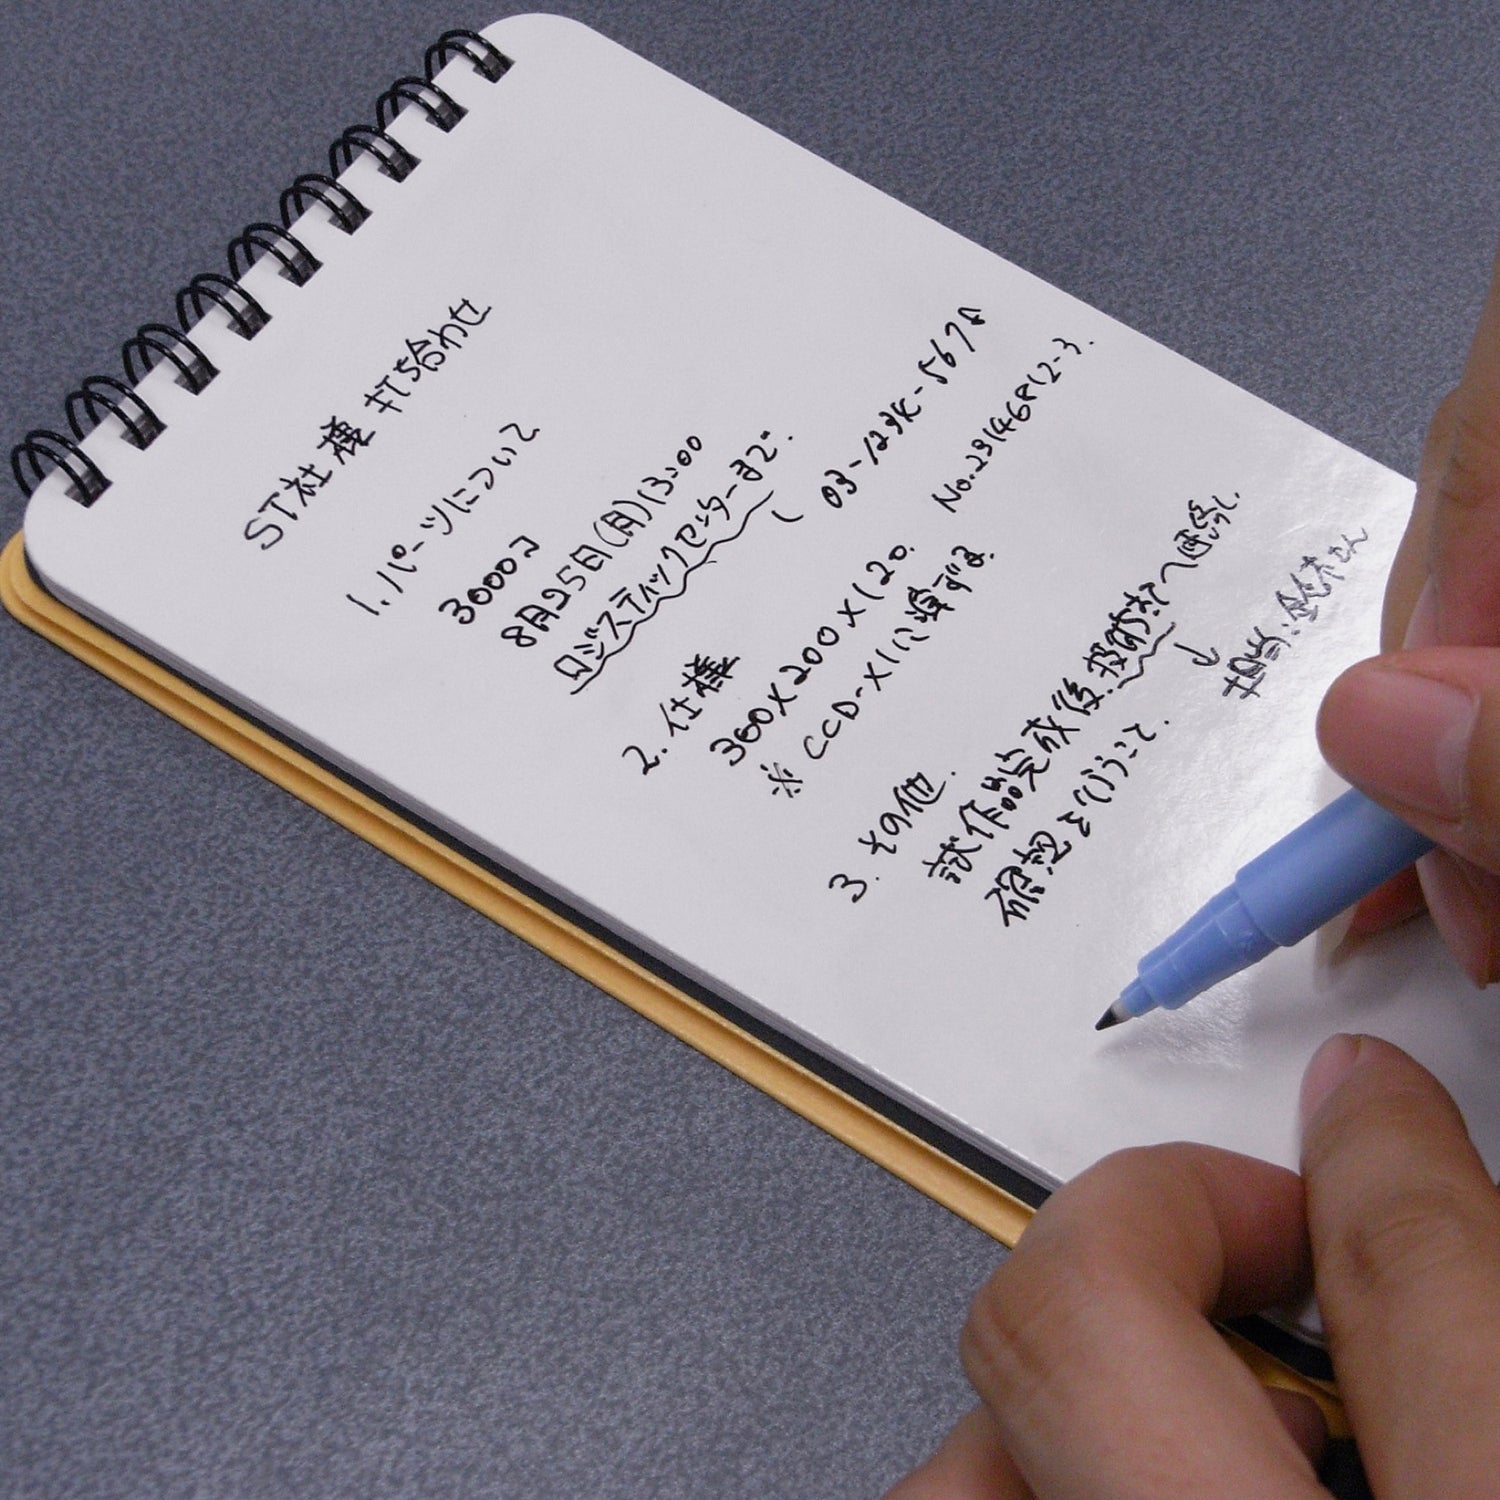 ST社様 打ち合わせ
1. パーツについて
3000コ
8月25日(月)13:00
ロジスティックセンターまで.
03-1234-5678
2. 仕様
No.23146812-3.
360×200×120.
※ CCD-X1に準ずる.
3. その他.
試作品完成後.技術部へ連絡し.
確認をとうこと.
↓
担当:鈴木さん